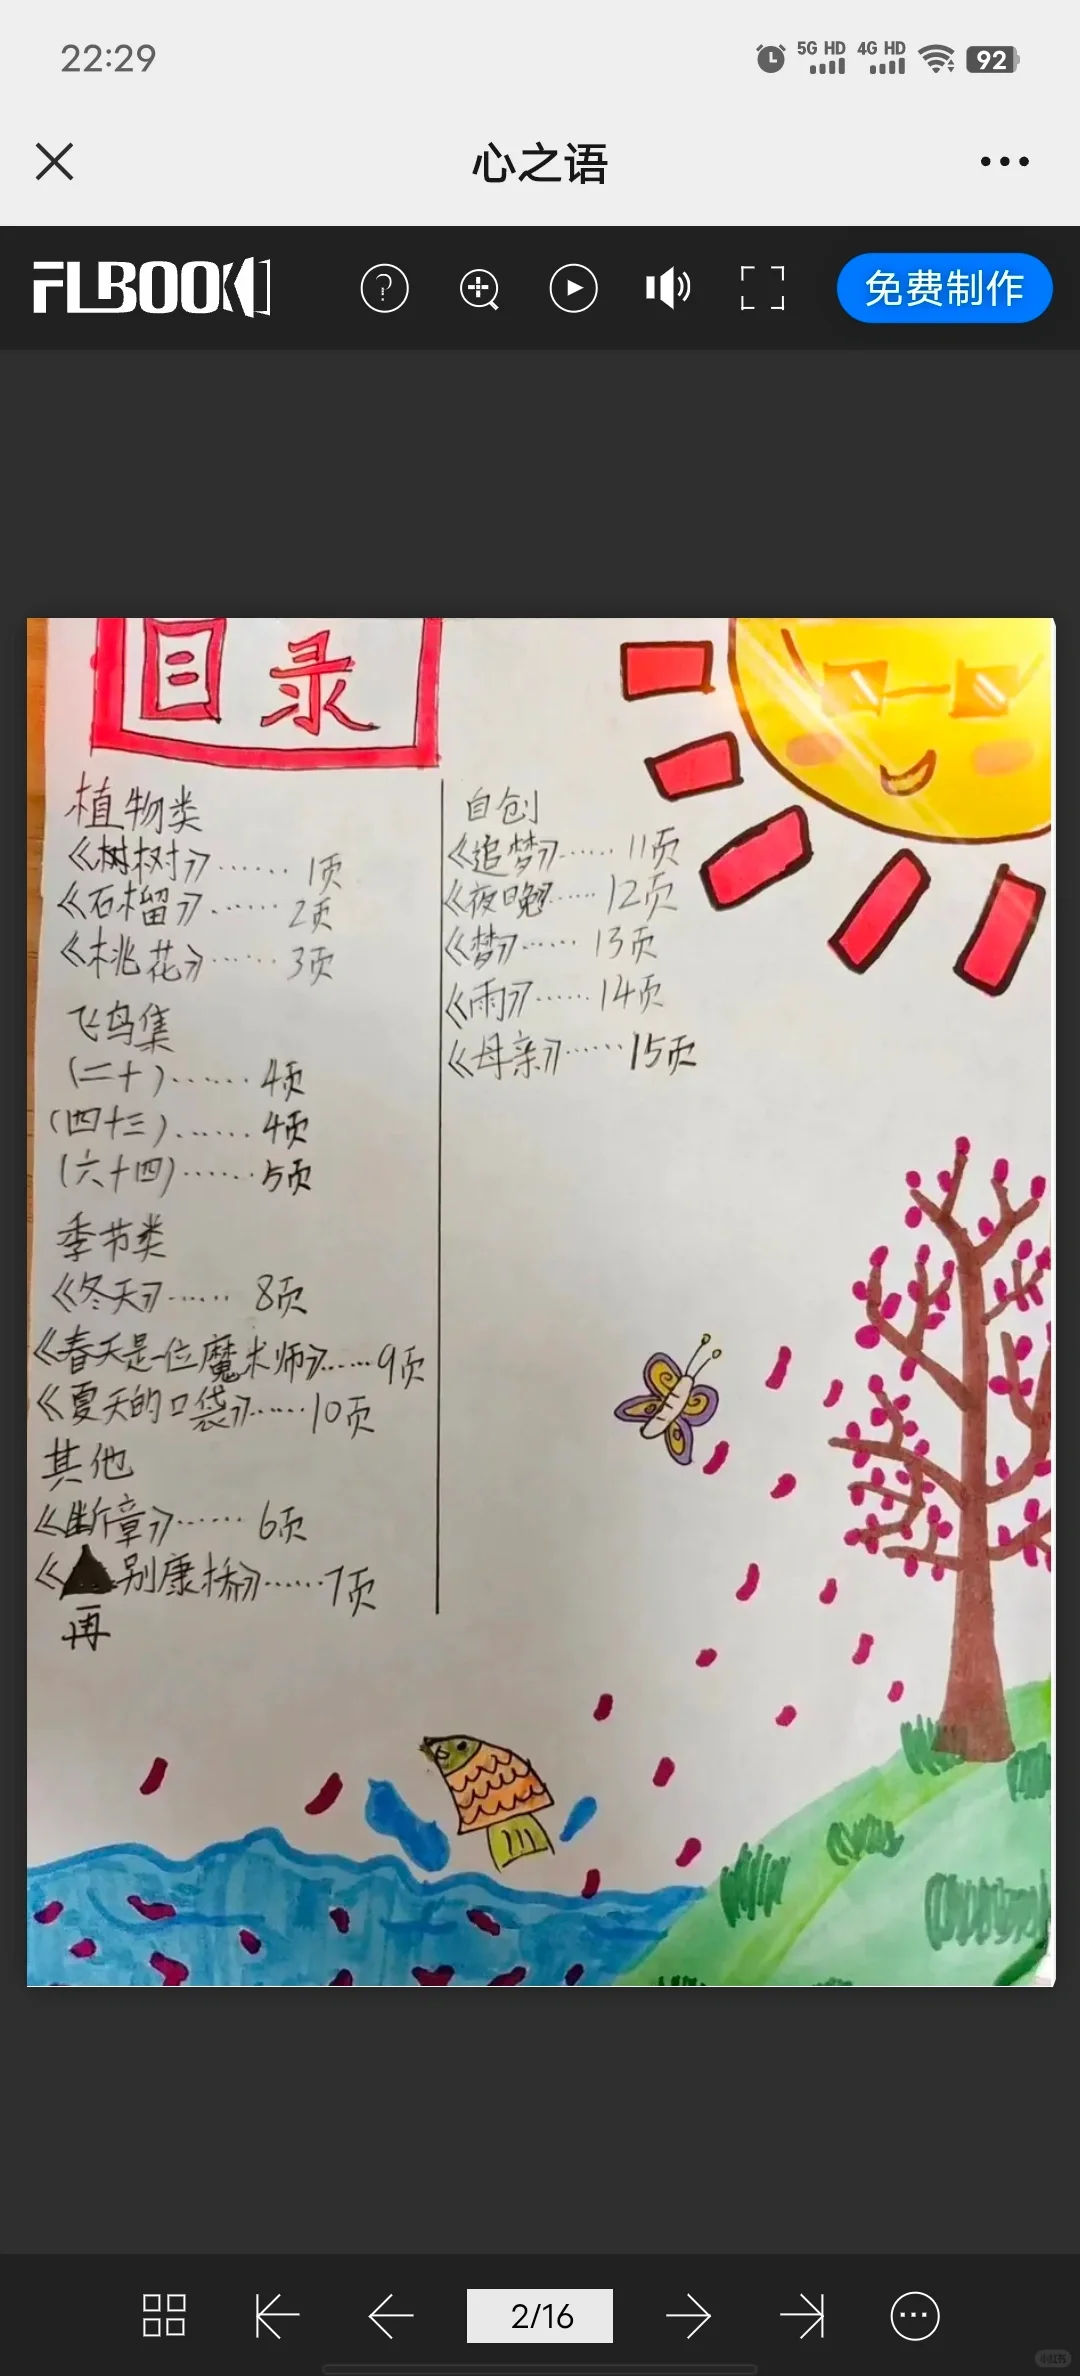 22:29
5G HD 4G HD 92
心之语
FLBOOK
免费制作
目录
植物类
《树树》...... 1页
《石榴》...... 2页
《桃花》...... 3页
飞鸟集
(二十)...... 4页
(四十三)...... 4页
(六十四)...... 5页
季节类
《冬天》...... 8页
《春天是一位魔术师》...... 9页
《夏天的口袋》...... 10页
其他
《断章》...... 6页
《别康桥》...... 7页
再
自创
《追梦》...... 11页
《夜晚》...... 12页
《梦》...... 13页
《雨》...... 14页
《母亲》...... 15页
2/16
小红书